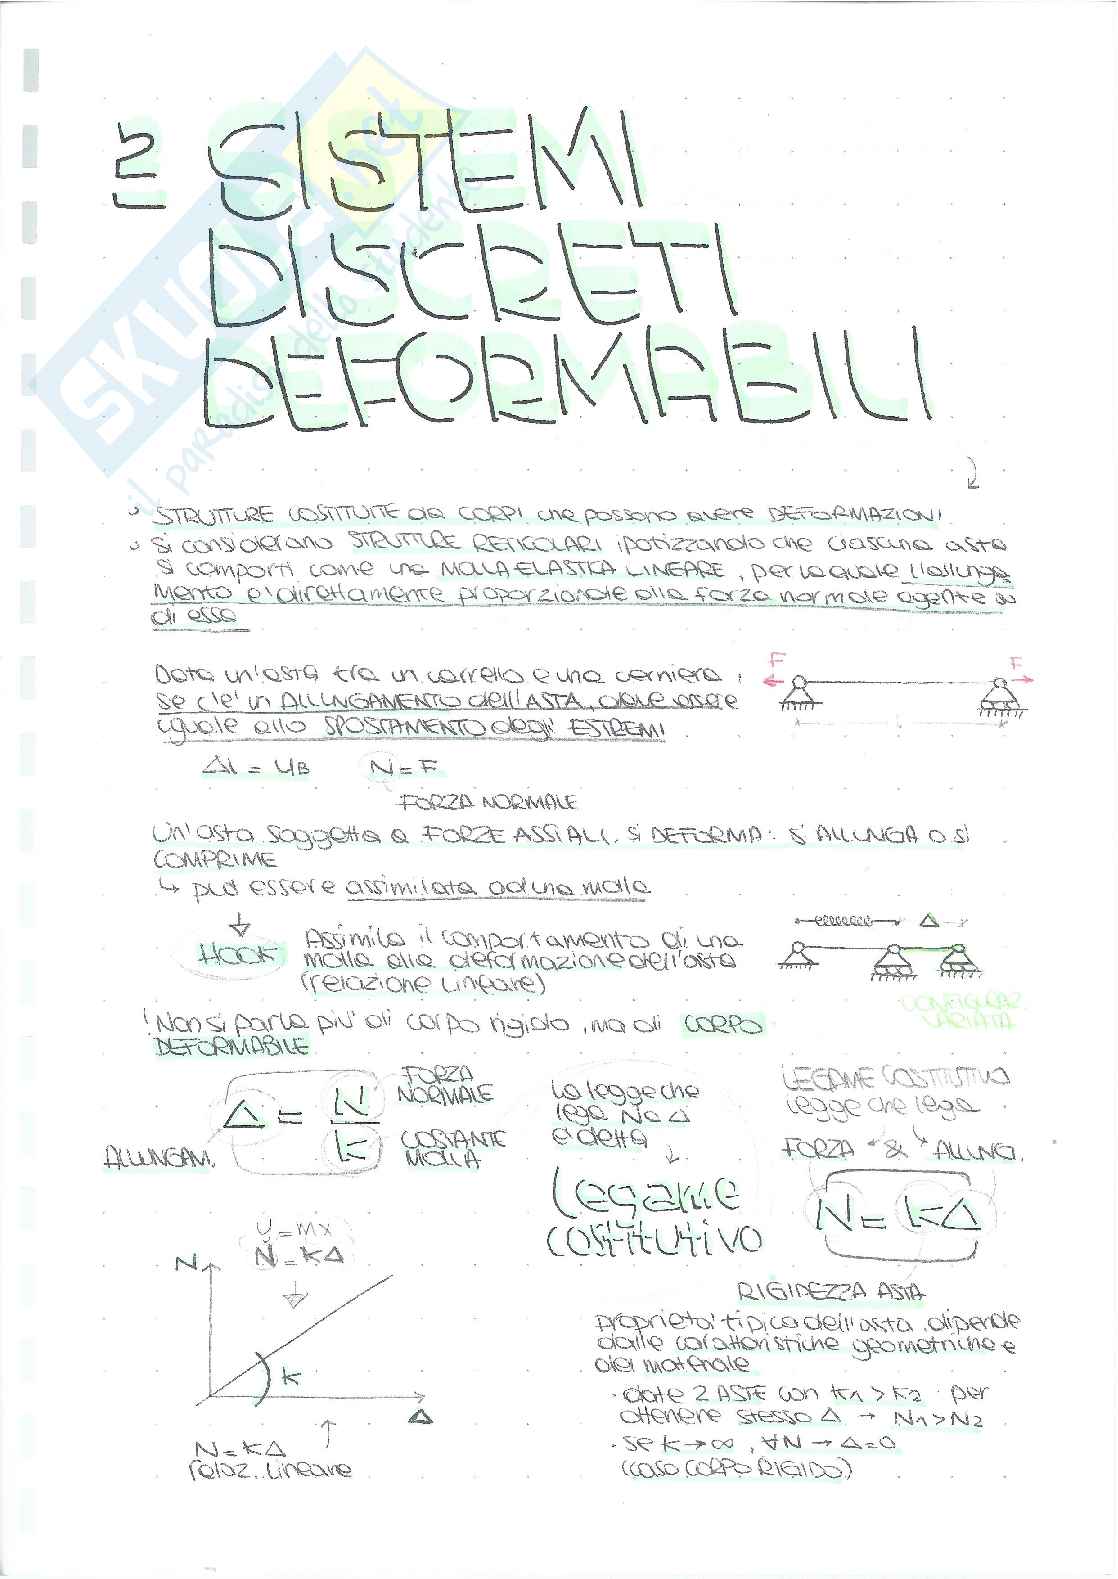 2 SISTEMI
DISCRETI
DEFORMABILI
SKUOLA.net
il paradiso dello studente
STRUTTURE COSTITUITE da CORPI che possono avere DEFORMAZIONI
Si considerano STRUTTURE RETICOLARI ipotizzando che ciascuna asta
si comporti come una MOLLA ELASTICA LINEARE, per la quale l'allunga
mento e' direttamente proporzionale alla forza normale agente su
di essa
Data un'asta tra un carrello e una cerniera,
se c'e' un ALLUNGAMENTO dell'ASTA, deve essere
uguale allo SPOSTAMENTO degli ESTREMI
F F
l
Δl = UB N = F
FORZA NORMALE
Un'asta soggetta a FORZE ASSIALI, si DEFORMA: S'ALLUNGA O SI
COMPRIME
↳ può essere assimilata ad una molla
HOOK
Assimila il comportamento di una
molla alla deformazione dell'asta
(relazione lineare)
Δ
CONFIGURAZ.
VARIATA
! Non si parla piu' di corpo rigido, ma di CORPO
DEFORMABILE
Δ = N/K
FORZA
NORMALE
COSTANTE
MOLLA
ALLUNGAM.
La legge che
lega N e Δ
e' detta
Legame
COSTITUTIVO
LEGAME COSTITUTIVO
Legge che lega
FORZA & ALLUNG.
N = KΔ
RIGIDEZZA ASTA
proprieta' tipica dell'asta, dipende
dalle caratteristiche geometriche e
del materiale
· date 2 ASTE con K1 > K2 per
ottenere stesso Δ → N1 > N2
· se K → ∞, ∀N → Δ = 0
(CASO CORPO RIGIDO)
y = mx
N = KΔ
N
K
Δ
N = KΔ
relaz. Lineare